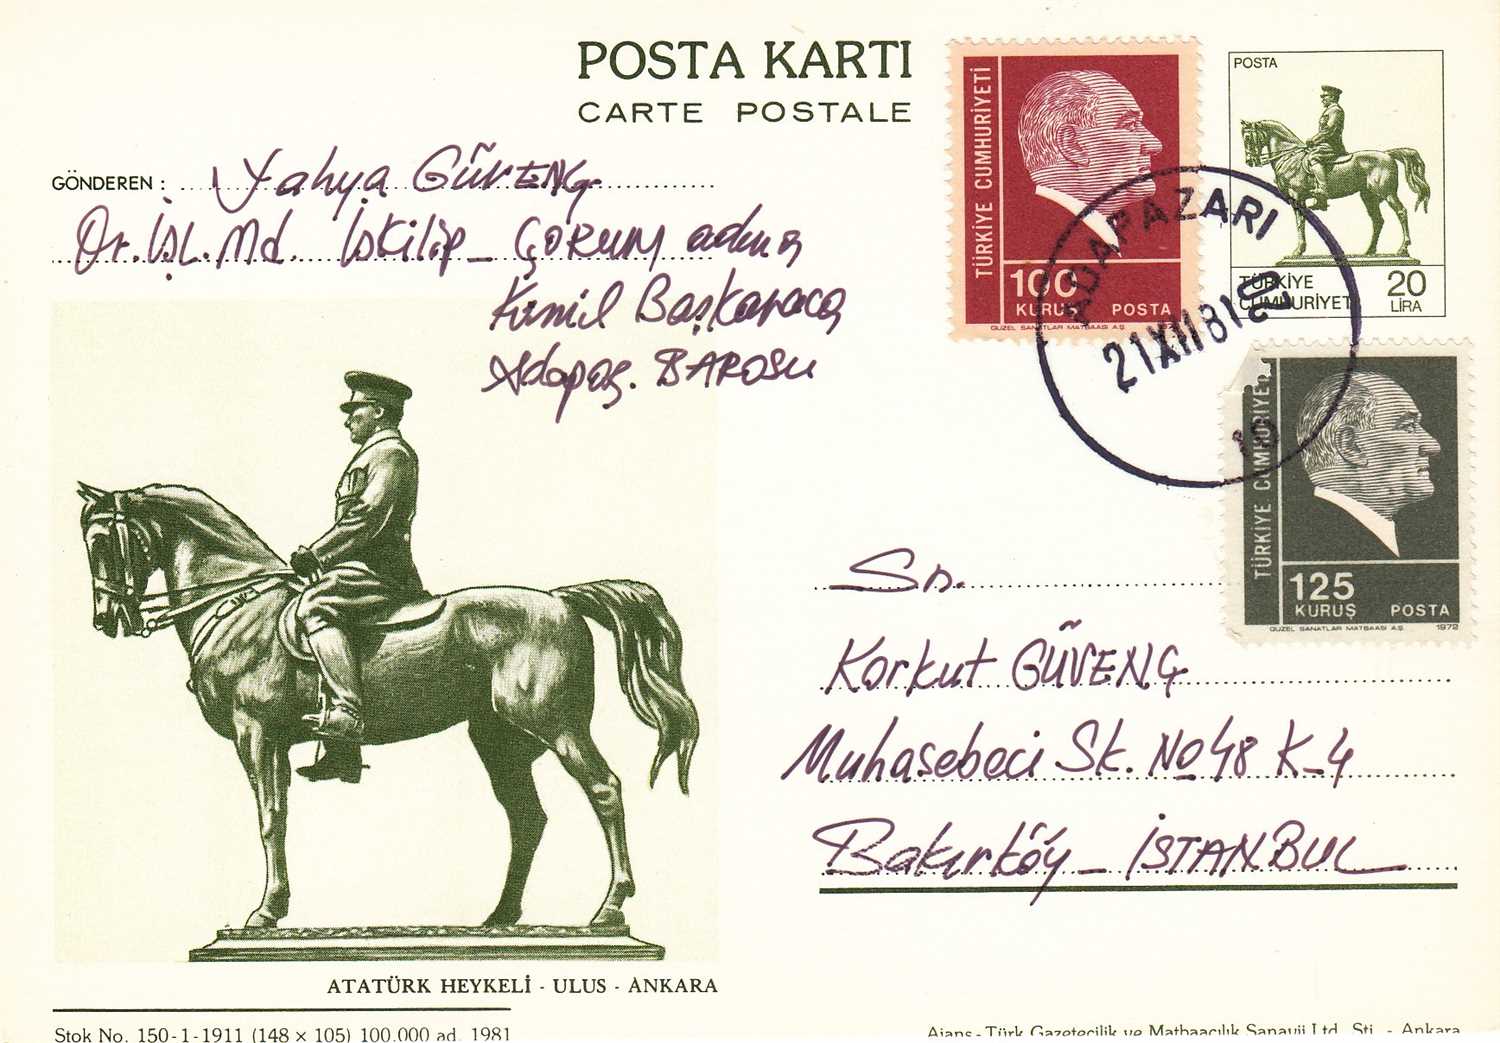 POSTA KARTI
CARTE POSTALE
GÖNDEREN : Yahya GÜVENÇ
Or. İŞL. Md. İskilip - ÇORUM adına
Kamil Başkaraağaç
Adapaz. BAROSU
TÜRKİYE CUMHURİYETİ
100
KURUŞ POSTA
GÜZEL SANATLAR MATBAASI A.Ş.
POSTA
TÜRKİYE
CUMHURİYETİ
20
LİRA
ADAPAZARI
21XII81
TÜRKİYE CUMHURİYE
125
KURUŞ POSTA
GÜZEL SANATLAR MATBAASI A.Ş. 1972
Sn.
Korkut GÜVENÇ
Muhasebeci Sk. No 48 K-4
Bakırköy - İSTANBUL
ATATÜRK HEYKELİ - ULUS - ANKARA
Stok No. 150-1-1911 (148 × 105) 100.000 ad. 1981
Ajans-Türk Gazetecilik ve Matbaacılık Sanayii Ltd. Şti. - Ankara